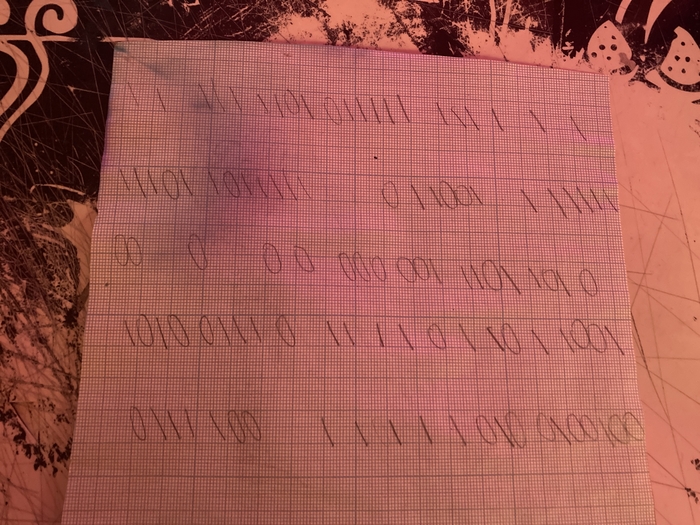 1 1 111 1101 0111111 1111 1 1
11101 1011111 011001 1 11111
00 0 0 0 000 001 1101 101 0
1010 0111 0 11 1 1 0 1 10 1 1001
0111 100 1 1 1 1 1 010 0100100